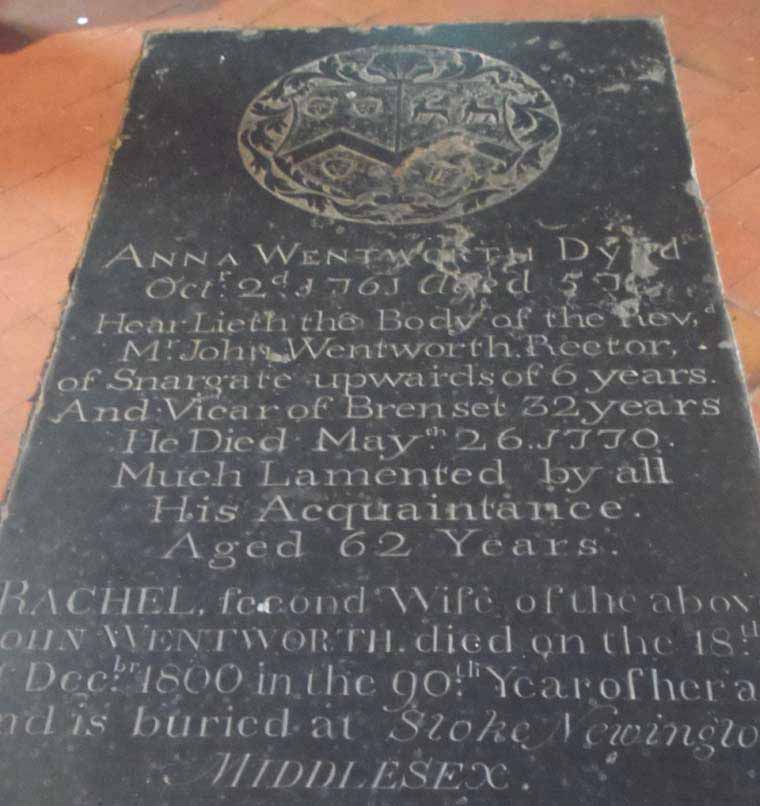 ANNA WENTWORTH Dyed
Octr. 2d. 1761 Aged 57
Hear Lieth the Body of the Revd,
Mr. John Wentworth. Rector,
of Snargate upwards of 6 years.
And Vicar of Brenset 32 years
He Died May th 26. 1770.
Much Lamented by all
His Acquaintance.
Aged 62 Years.
RACHEL, ſecond Wife of the abov
OHN WENTWORTH. died on the 18.th
f Decbr. 1800 in the 90.th Year of her a
nd is buried at Stoke Newingto
MIDDLESEX.